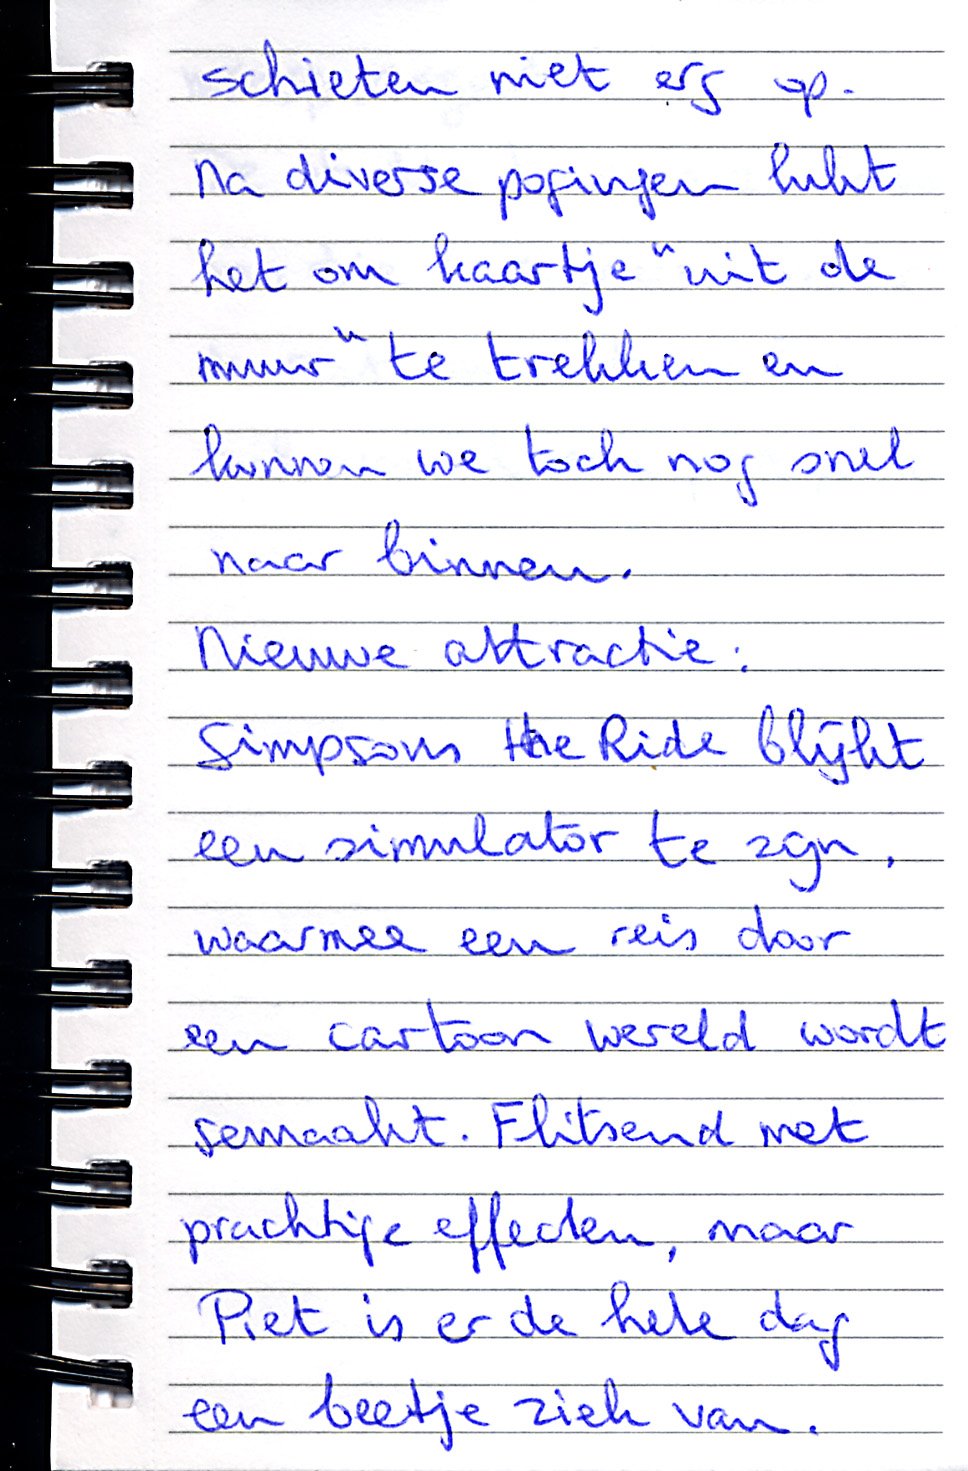 schieten niet erg op.
Na diverse pogingen lukt
het om kaartje "uit de
muur" te trekken en
kunnen we toch nog snel
naar binnen.
Nieuwe attractie:
Simpsons the Ride blijkt
een simulator te zijn,
waarmee een reis door
een cartoon wereld wordt
gemaakt. Flitsend met
prachtige effecten, maar
Piet is er de hele dag
een beetje ziek van.